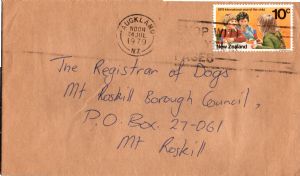 AUCKLAND
NOON
24 JUL
1979
N.Z.
1979 international year of the child
10c
New Zealand
The Registrar of Dogs
Mt Roskill Borough Council,
P.O. Box. 27-061
Mt Roskill